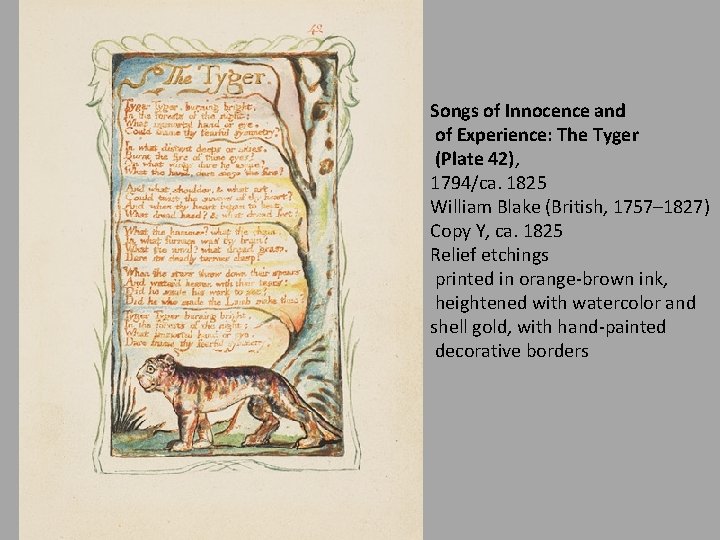 42
The Tyger.
Tyger Tyger, burning bright,
In the forests of the night:
What immortal hand or eye,
Could frame thy fearful symmetry?
In what distant deeps or skies,
Burnt the fire of thine eyes?
On what wings dare he aspire?
What the hand, dare sieze the fire?
And what shoulder, & what art,
Could twist the sinews of thy heart?
And when thy heart began to beat,
What dread hand? & what dread feet?
What the hammer? what the chain,
In what furnace was thy brain?
What the anvil? what dread grasp,
Dare its deadly terrors clasp?
When the stars threw down their spears
And water'd heaven with their tears:
Did he smile his work to see?
Did he who made the Lamb make thee?
Tyger Tyger burning bright,
In the forests of the night:
What immortal hand or eye,
Dare frame thy fearful symmetry?
Songs of Innocence and
of Experience: The Tyger
(Plate 42),
1794/ca. 1825
William Blake (British, 1757–1827)
Copy Y, ca. 1825
Relief etchings
printed in orange-brown ink,
heightened with watercolor and
shell gold, with hand-painted
decorative borders